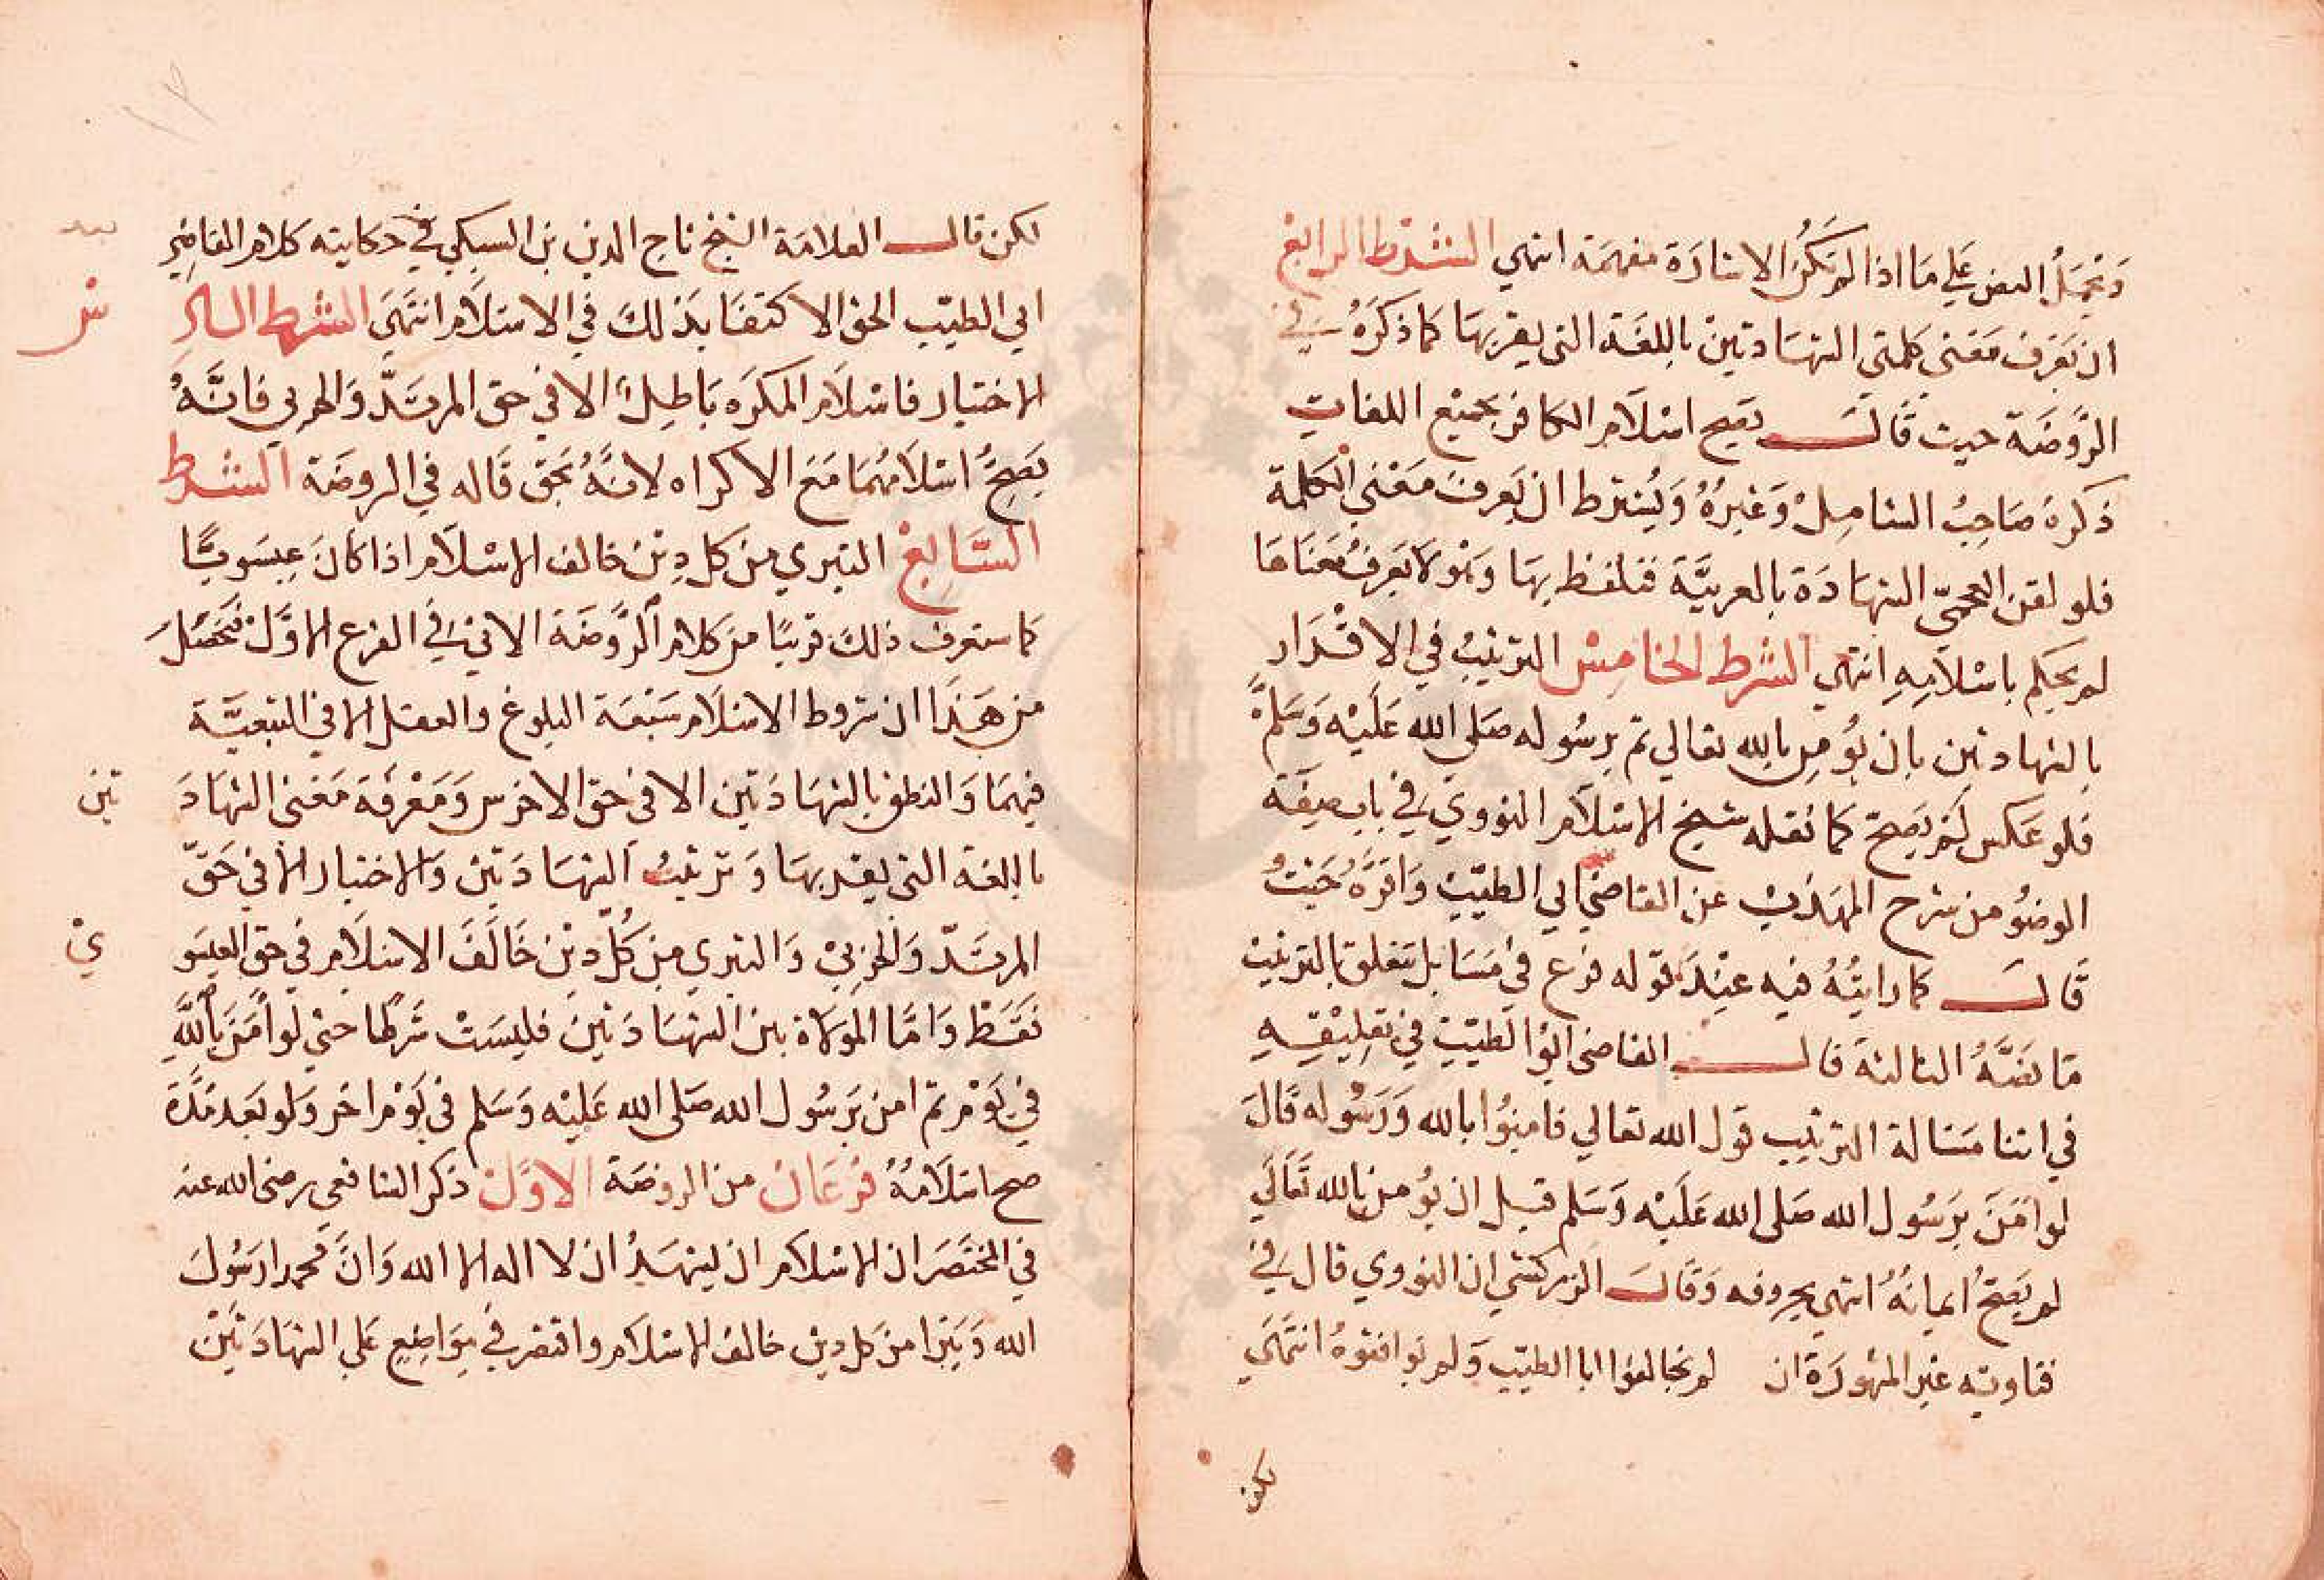 وتحمل النص علي ما اذا لم تكن الاشارة مفهمة انتهي الشرط الرابع
ان يعرف معني كلمتي الشهادتين باللغة التي يقر بها كما ذكره في
الروضة حيث قال يصح اسلام الكافر بجميع اللغات
ذكره صاحب الشامل وغيره ويشترط ان يعرف معني الكلمة
فلو لقن العجمي الشهادة بالعربية فتلفظ بها وهو لا يعرف معناها
لم يحكم باسلامه انتهي الشرط الخامس الترتيب في الاقرار
بالشهادتين بان يؤمن بالله تعالي ثم برسوله صلى الله عليه وسلم
فلو عكس لم يصح كما نقله شيخ الاسلام النووي في باب صفة
الوضؤ من شرح المهذب عن القاضي ابي الطيب واقره حيث
قال كما رايته فيه عند قوله فرع في مسايل تتعلق بالترتيب
ما نصه الثالثة قال القاضي ابو الطيب في تعليقه
في اثنا مسالة الترتيب قول الله تعالي فامنوا بالله ورسوله قال
لو امن برسول الله صلى الله عليه وسلم قبل ان يؤمن بالله تعالي
لم يصح ايمانه انتهي بحروفه وقال الزركشي ان النووي قال في
فتاويه غير المشهورة ان لم يخالفوا ابا الطيب ولم يوافقوه انتهي
لكن
لكن قال العلامة الشيخ تاج الدين بن السبكي في حكايته كلام القاضي
ابي الطيب الحق الاكتفا بذلك في الاسلام انتهي الشرط الساد س
الاختيار فاسلام المكره باطل الا في حق المرتد والحربي فانه
يصح اسلامهما مع الاكراه لانه بحق قاله في الروضة الشرط
السابع التبري من كل دين خالف الاسلام اذا كان عيسويا
كما ستعرف ذلك قريبا من كلام الروضة الاتي في الفرع الاول فتحصل
من هذا ان شروط الاسلام سبعة البلوغ والعقل الا في التبعية
فيهما والنطق بالشهادتين الا في حق الاخرس ومعرفة معني الشهاد تين
باللغة التي يقر بها وترتيب الشهادتين والاختيار الا في حق
المرتد والحربي والتبري من كل دين خالف الاسلام في حق العيسو ي
فقط واما الموالاة بين الشهادتين فليست شرطا حتي لو امن بالله
في يوم ثم امن برسول الله صلى الله عليه وسلم في يوم اخر ولو بعد مدة
صح اسلامه فرعان من الروضة الاول ذكر الشافعي رضى الله عنه
في المختصر ان الاسلام ان يشهد ان لا اله الا الله وان محمدا رسول
الله ويتبرا من كل دين خالف الاسلام واقتصر في مواضع علي الشهادتين